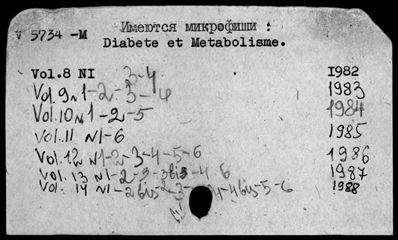 Имеются микрофиши :
V 5734 -M
Diabete et Metabolisme.
Vol.8 NI 3-4 1982
Vol.9 N1-2-3-4 1983
Vol.10 N1-2-5 1984
Vol.11 N1-6 1985
Vol.12 N1-2-3-4-5-6 1986
Vol.13 N1-2-3-3bis-4 6 1987
Vol.14 N1-2bis-2-3 1-4bis-5-6 1988